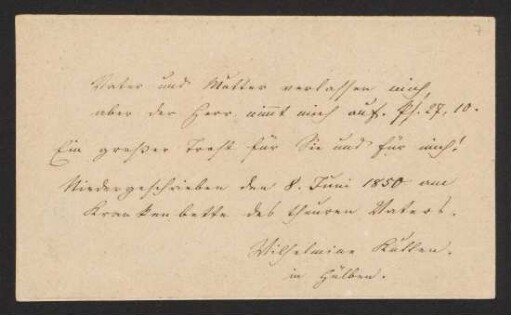 Vater und Mutter verlassen mich,
aber der Herr nimmt mich auf. Ps. 27, 10.
Ein großer Trost für Sie und für mich!
Niedergeschrieben den 8. Juni 1850 am
Krankenbette des theuren Vaters.
Wilhelmine
in Hülben.